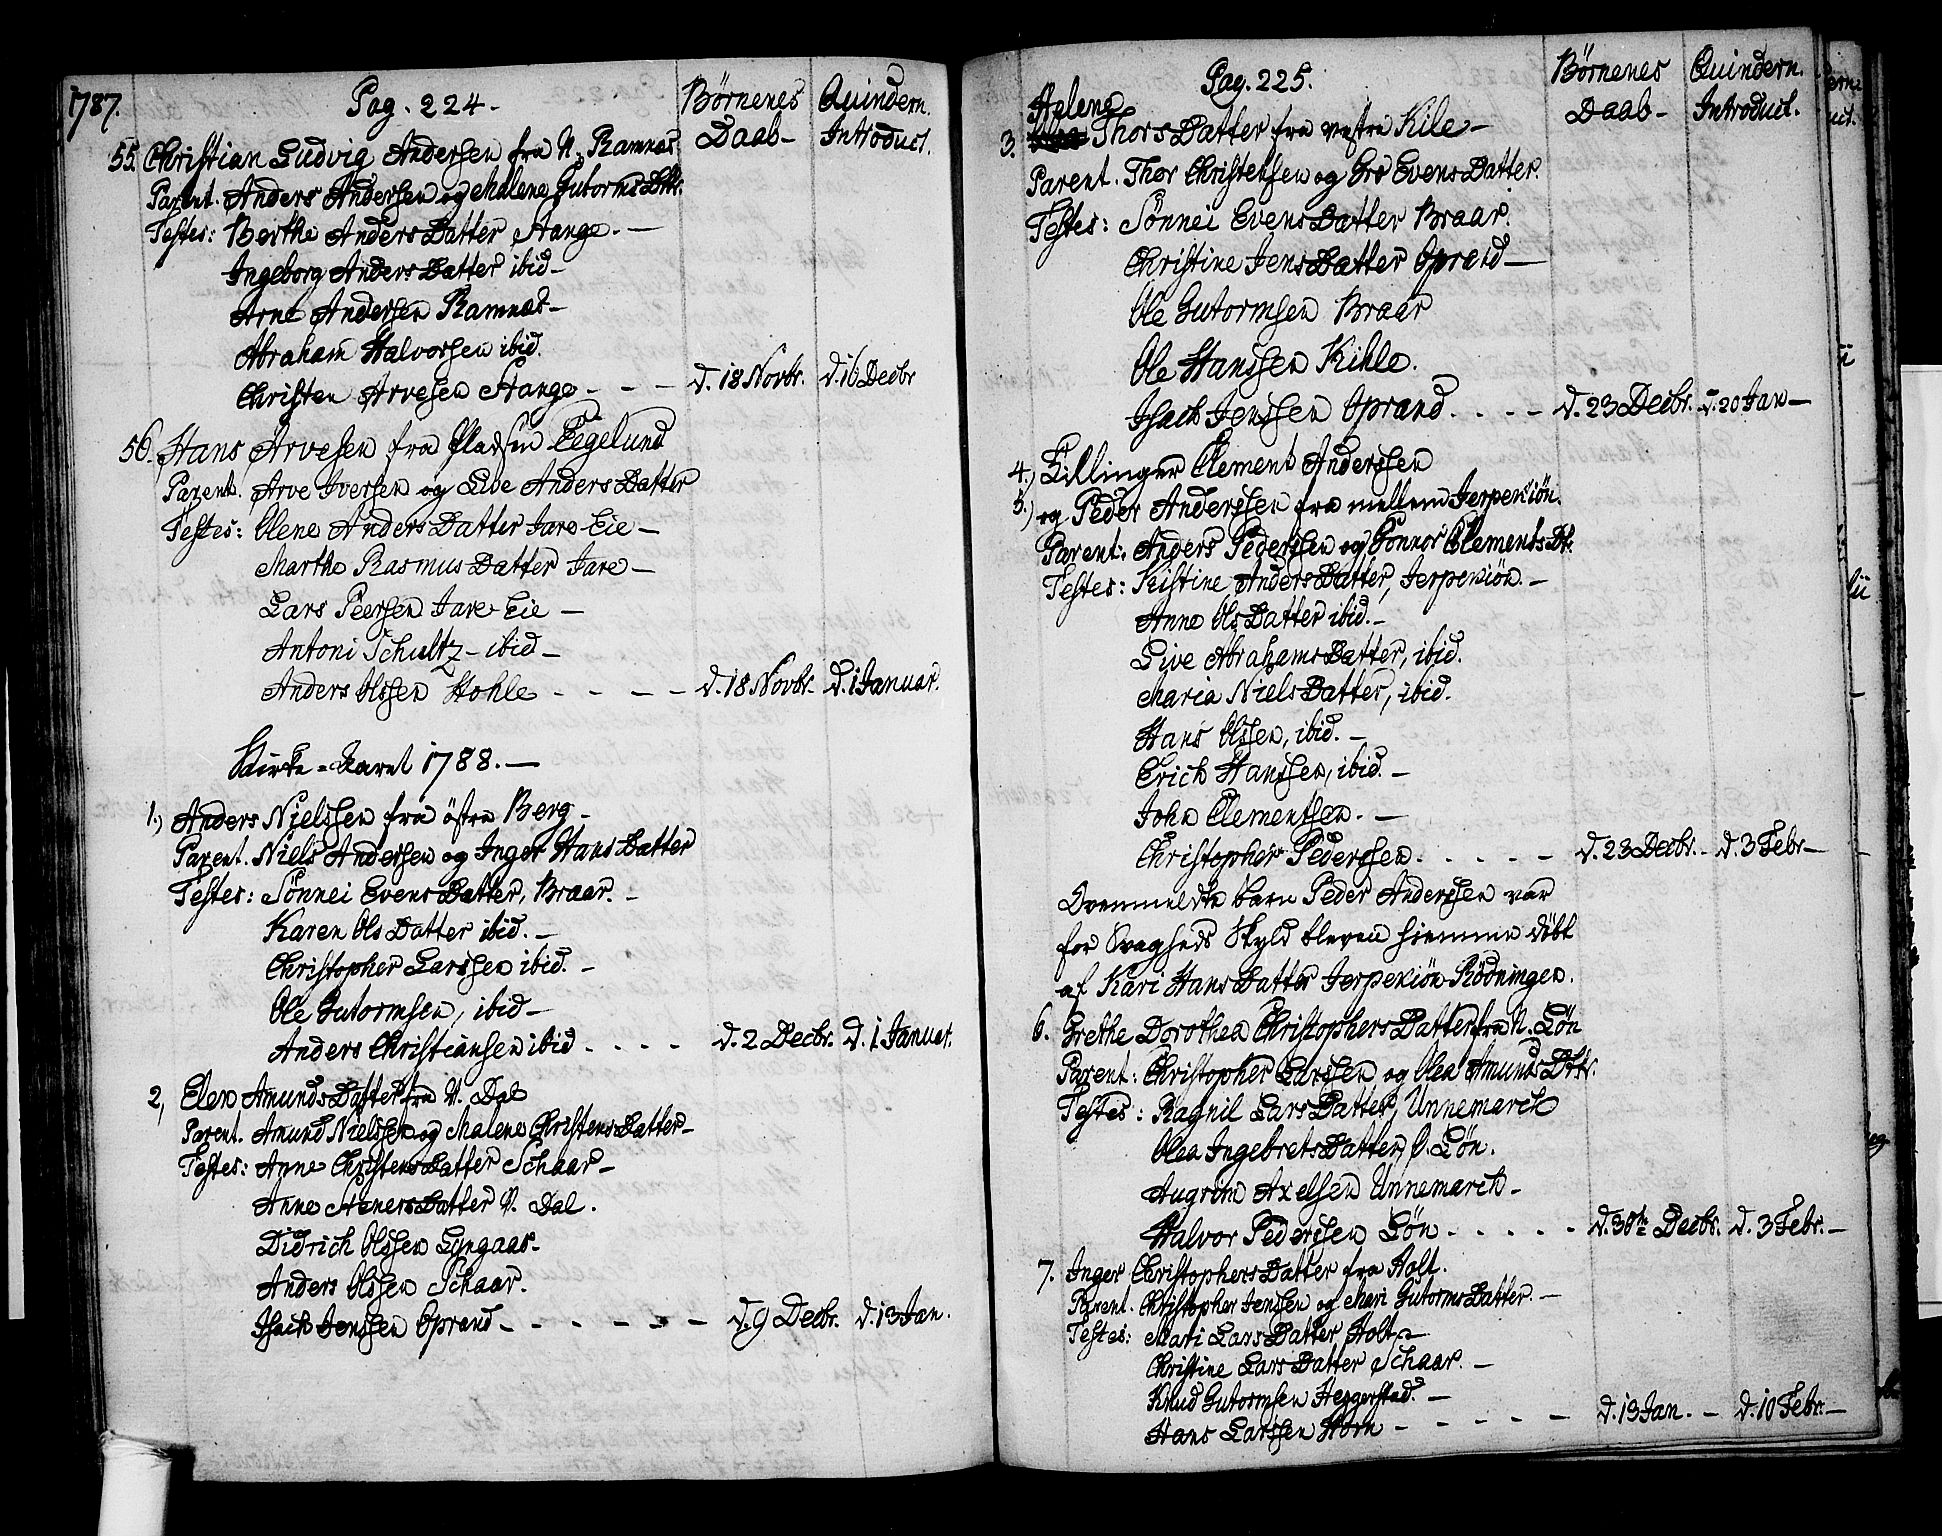 1787.
Pag. 224.
Börnenes Daab-
Quindern. Introduct.
55. Christian Ludvig Andersen fra N. Ramnæs
Parent. Anders Andersen og Malene Gutorms Dttr.
Testes: Berthe Anders Datter Stange. -
Ingeborg Anders Datter ibid -
Arne Andersen Ramnæs -
Abraham Halvorsen ibid.
Christen Arvesen Stange - - - d. 18 Novbr. d. 16 Decbr
56. Hans Arvesen fra Pladsen Tegelund
Parent. Arve Iversen og Live Anders Datter
Testes: Olene Anders Datter Jare Eie -
Marthe Rasmus Datter Jare -
Lars Peersen Jare Eie -
Antoni Schultz - ibid -
Anders Olssen Hohle - - - - d. 18 Novbr. d. 1 Januar.
Kirke-Aaret 1788. -
1.) Anders Nielssen fra östre Berg -
Parent. Niels Andersen og Inger Hans Datter
Testes: Sönnei Evens Datter, Braar. -
Karen Ols Datter ibid. -
Christopher Larssen ibid. -
Ole Gutormsen, ibid -
Anders Christiansen ibid . - - - d. 2 Decbr. d. 1 Januar.
2, Elen Amunds Datter fra V. Dal
Parent. Amund Nielssen og Malene Christens Datter -
Testes: Anne Christens Datter Schaar -
Anne Datter V. Dal.
Didrich Olssen Lyngaas -
Anders Olssen Schaar.
Isach Jenssen Oprand - - - - - - d. 9 Decbr. d. 13 Jan.
Pag. 225.
Börnenes Daab -
Quindern. Introduct.
Helene
3. Thors Datter fra vestre Kile -
Parent. Thor Christensen og Gro Evens Datter.
Testes: Sönnei Evens Datter Braar.
Christine Jens Datter Oprand -
Ole Gutormsen Braar
Ole Hanssen Kihle.
Isach Jenssen Oprand . - - - d. 23 Decbr. d. 20 Jan -
4.) Tillinger Clement Anderssen
5.) og Peder Anderssen fra mellem Jerpekiön.
Parent: Anders Pederssen og Gonnor Clements Dt.
Testes: Kistine Anders Datter, Jerpekiön. -
Anne Ols Datter ibid. -
Live Abrahams Datter, ibid.
Maria Niels Datter, ibid.
Hans Olssen, ibid. -
Erich Hanssen, ibid. -
John Clementsen. -
Christopher Pederssen. - - - - - d. 23 Decbr. - d. 3 Febr -
Ovenmeldte barn Peder Anderssen var
for Svagheds Skyld bleven hiemme döbt
af Kari Hans Datter Jerpekiön Rödningen.
6. Grethe Dorothea Christophers Datter fra N. Lön
Parent: Christopher Larssen og Olea Amunds Dttr.
Testes: Ragnil Lars Datter, Unnemarck
Olea Ingebrets Datter, Ö. Lön.
Augrim Axelsen Unnemarck -
Halvor Pederssen Lön . - - - - d. 30te Decbr. d. 3 Febr. -
7. Inger Christophers Datter fra Holt.
Parent. Christopher Jenssen og Mari Gutorms Datter. -
Testes: Mari Lars Datter Holt -
Christine Lars Datter Schaar. -
Knud Gutormsen Heggerstad. -
Hans Larssen Horn - - - - - - d. 13 Jan. - d. 10 Febr. -